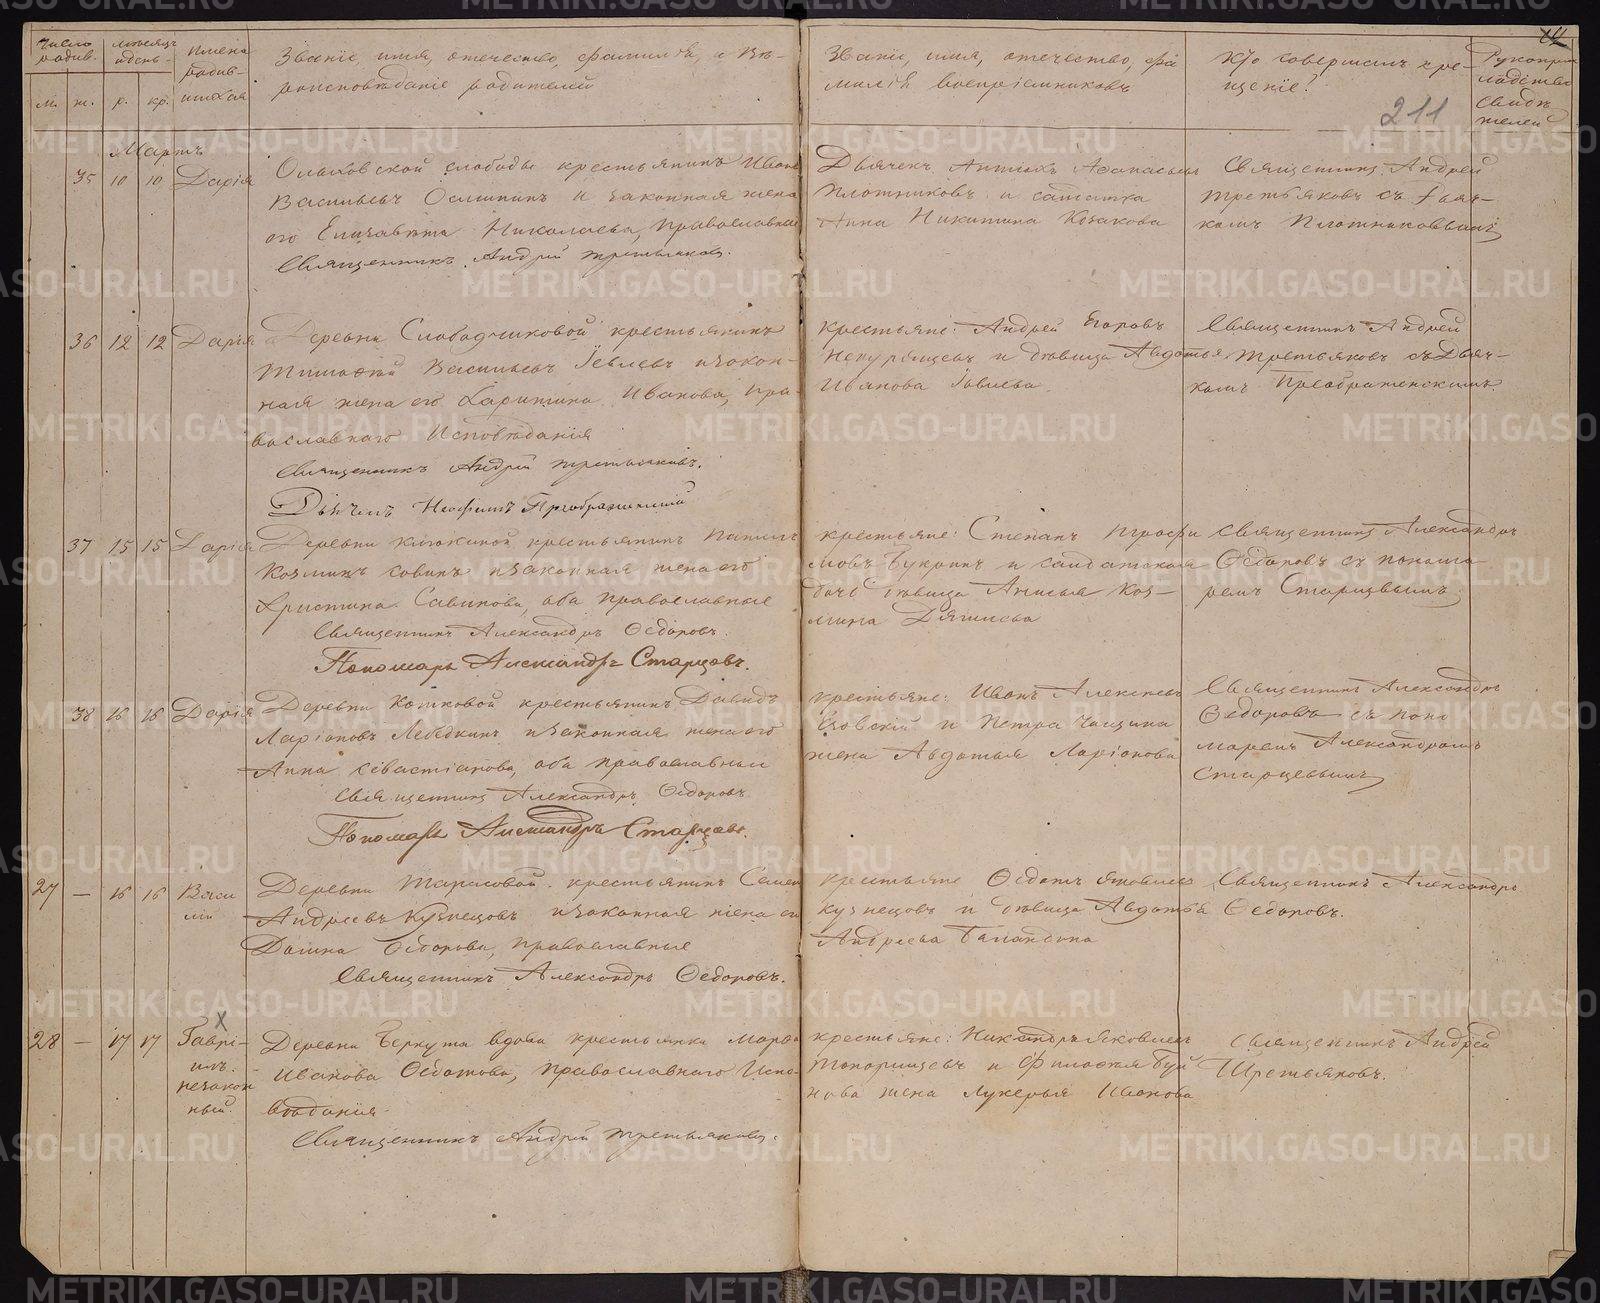 Число родив.
Мѣсяцъ и день
Имена родив-
шихся
м. ж. р. кр.
Званіе, имя, отечество, фамилія, и вѣ-
роисповѣданіе родителей
Званіе, имя, отечество, фа
милія воспріемниковъ
Кто совершалъ кре-
щеніе?
Рукопри
ладство
свидѣ
телей
211
Мартъ
35 10 10 Дарія
слободы крестьянинъ Иванъ
Васильевъ и законная жена
его Елизавета Николаева, православные
Священникъ Андрей Третьяковъ.
Дьячекъ
Плотниковъ и солдатка
Анна Никитина Козакова
Священникъ Андрей
Третьяковъ съ дьяч-
комъ Плотниковымъ
36 12 12 Дарія
Деревни Слободчиковой крестьянинъ
Тимофей Васильевъ Іевлевъ и закон-
ная жена его Харитина Иванова, пра-
вославнаго Исповѣданія
Священникъ Андрей Третьяковъ.
Дьячекъ Неофитъ Преображенскій
крестьяне: Андрей Егоровъ
и дѣвица Авдотья
Иванова Іевлева
Священникъ Андрей
Третьяковъ съ Дьяч-
комъ Преображенскимъ
37 15 15 Дарія
Деревни крестьянинъ
Козминъ и законная жена его
Христина Савинова, оба православные
Священникъ Александръ Ѳедоровъ.
Пономарь Александръ Старцовъ.
крестьяне: Степанъ Трофи
мовъ и солдатская
дочь дѣвица Анисья Коз-
мина
Священникъ Александръ
Ѳедоровъ съ понома-
ремъ Старцевымъ
38 16 16 Дарія
Деревни крестьянинъ Давидъ
Ларіоновъ Лебедкинъ и законная жена его
Анна Севастіанова, оба православные
Священникъ Александръ Ѳедоровъ
Пономарь Александръ Старцовъ.
крестьяне: Иванъ Алексѣевъ
и Петра
жена Авдотья Ларіонова
Священникъ Александръ
Ѳедоровъ съ поно
маремъ Александромъ
Старцевымъ
27 — 16 16 Васи
лій
Деревни Тарасовой крестьянинъ Семенъ
Андреевъ Кузнецовъ и законная жена его
Домна Ѳедорова, православные
Священникъ Александръ Ѳедоровъ.
крестьяне Ѳедотъ Яковлевъ
Кузнецовъ и дѣвица Авдотья
Андреева Баландина
Священникъ Александръ
Ѳедоровъ.
28 — 17 17 Гаврі-
илъ.
незакон
ный.
Деревни Беркута вдова крестьянка Марѳа
Иванова Ѳедотова, православнаго Испо-
вѣданія
Священникъ Андрей Третьяковъ.
крестьяне: Никандръ Яковлевъ
Топорищевъ и Филофея Буй
нова жена Лукерья Иванова
Священникъ Андрей
Третьяковъ.
METRIKI.GASO-URAL.RU